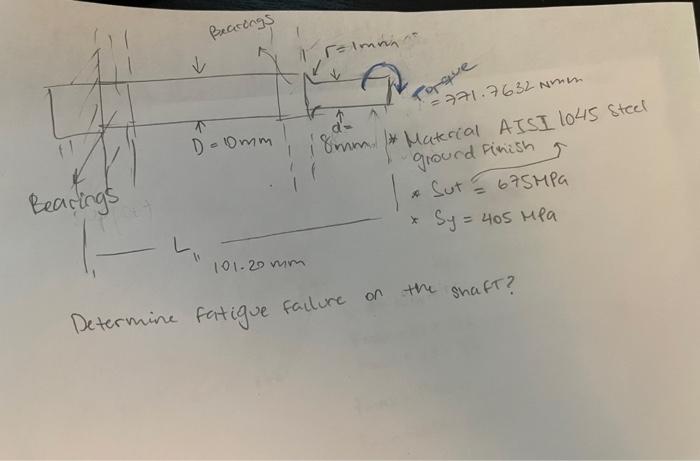 Bearings
r = 1mm
Torque
= 771.7632 Nmm
D = 10mm
d=
8mm
* Material AISI 1045 Steel
ground Finish
* Sut = 675MPa
* Sy = 405 MPa
Bearings
L
101.20 mm
Determine fatigue failure on the shaft?